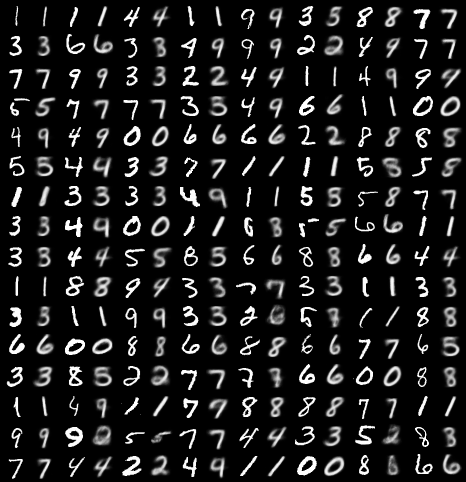 1 1 1 1 4 4 1 1 9 9 3 5 8 8 7 7
3 3 6 6 3 3 4 9 9 9 2 2 4 9 7 7
7 7 9 9 3 3 2 2 4 9 1 1 4 9 9 9
5 5 7 7 7 7 3 3 4 9 6 6 1 1 0 0
4 9 4 9 0 0 6 6 6 6 2 2 8 8 8 8
5 5 4 4 3 3 7 7 1 1 1 1 5 8 5 8
1 1 3 3 3 3 4 9 1 1 5 8 5 8 7 7
3 3 4 9 0 0 1 1 6 8 5 5 6 6 1 1
3 3 4 4 5 5 8 5 6 6 8 8 6 6 4 4
1 1 8 8 9 4 3 3 7 7 3 3 1 1 3 3
3 3 1 1 9 9 3 3 2 5 3 1 1 8 8
6 6 0 0 8 8 6 6 8 8 6 6 7 7 6 5
3 3 8 5 2 2 7 7 7 7 6 6 0 0 8 8
1 1 4 9 1 1 7 7 8 8 8 8 7 7 1 1
9 9 9 5 5 7 7 4 4 3 3 5 8 3
7 7 4 4 2 2 4 9 1 1 0 0 8 8 6 6